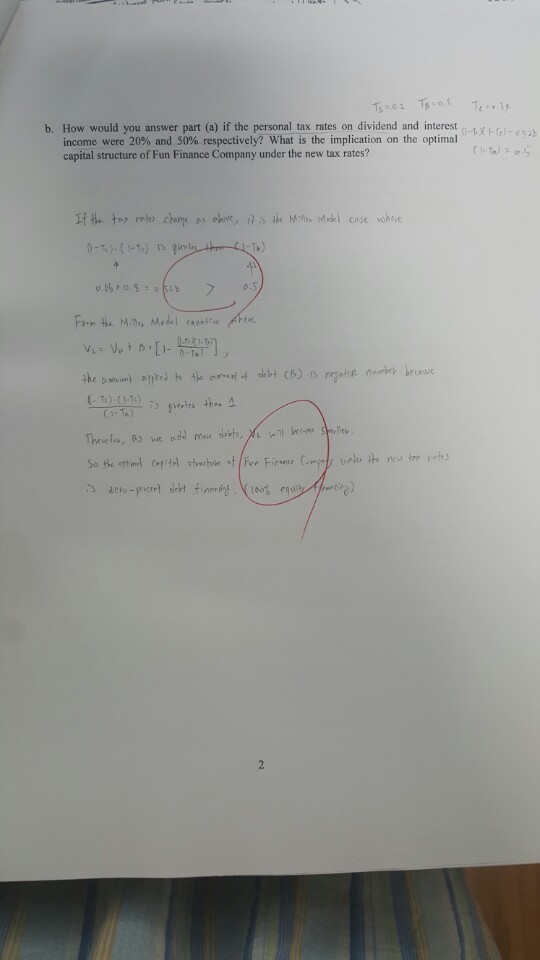 Ts=0.2 TB=0.5 Tc=0.34
b. How would you answer part (a) if the personal tax rates on dividend and interest
(1-Tc)(1-Ts)=0.528
income were 20% and 50% respectively? What is the implication on the optimal
(1-TB)=0.5
capital structure of Fun Finance Company under the new tax rates?
If the tax rates change as above, it is the Miller Model case where
(1-Tc)·(1-Ts) is greater than (1-TB)
0.66×0.8=0.528 > 0.5
From the Miller Model equation where
VL = VU + B·[1- (1-Tc)(1-Ts)/(1-TB)],
the amount applied to the amount of debt (B) is negative number because
(1-Tc)·(1-Ts)/(1-TB) is greater than 1.
Therefore, as we add more debts, VL will become smaller.
So the optimal capital structure of Fun Finance Company under the new tax rates
is zero-percent debt financing. (100% equity financing)
2